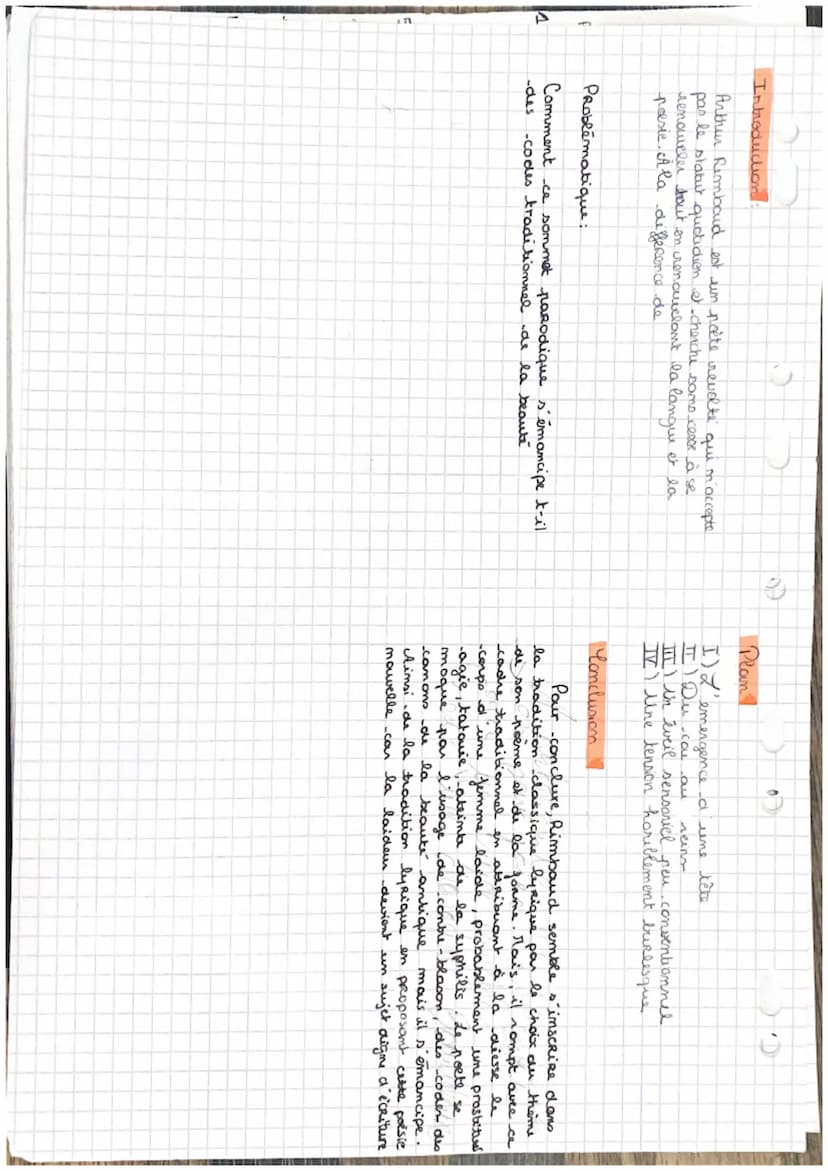 Introduction :
Arthur Rimbaud est un poète revolté qui n'accepte
pas le statut quotidien et cherche sans cesse à se
renouveler tout en renouvelant la langue et la
poésie. A la différence de
Problématique :
Comment ce sonnet parodique s'émancipe t-il
des codes traditionnel de la beauté
Plan
I) L'emergence d'une tête
II) Du cou au seins
III) Un éveil sensoriel peu conventionnel
IV) Une tension horriblement burlesque
Conclusion
Pour conclure, Rimbaud semble s'inscrire dans
la tradition classique lyrique par le choix du thème
de son poème et de la forme. Mais, il rompt avec ce
cadre traditionnel en attribuant à la déesse le
corps d'une femme laide, probablement une prostituée
agée, tatouée, atteinte de la syphilis. Le poète se
moque par l'usage de contre-blason, des codes des
canons de la beauté antique mais il s'émancipe.
Ainsi de la tradition lyrique en proposant cette poésie
nouvelle car la laideur devient un sujet digne d'écriture